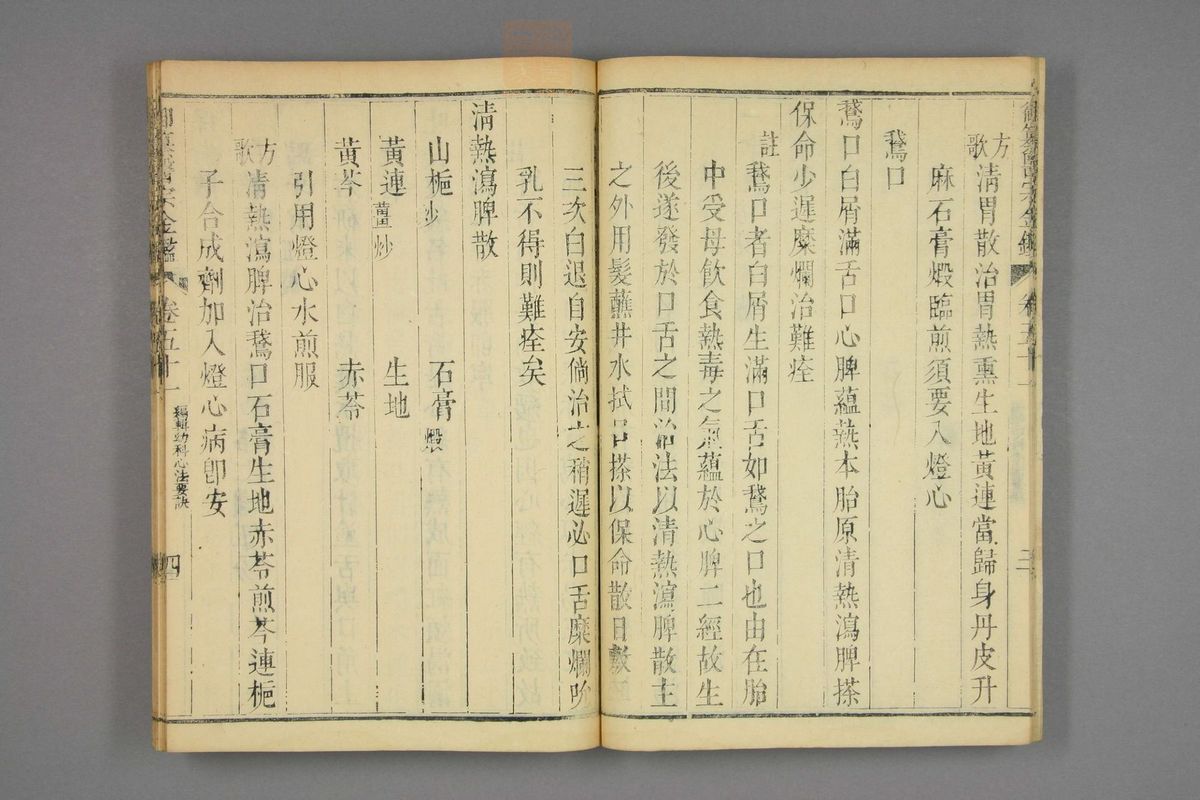 方歌 淸胃散治胃熱熏生地黃連當歸身丹皮升
麻石膏煅臨煎須要入燈心
鵞口
鵞口白屑滿舌口心脾蘊熱本胎原淸熱瀉脾搽
保命少遲糜爛治難痊
註 鵞口者白屑生滿口舌如鵞之口也由在胎
中受母飮食熱毒之氣蘊於心脾二經故生
後遂發於口舌之間治法以淸熱瀉脾散主
之外用髮蘸井水拭口搽以保命散日敷
三次白退自安倘治之稍遲必口舌糜爛吮
乳不得則難痊矣
淸熱瀉脾散
山梔炒 石膏煅
黃連薑炒 生地
黃芩 赤苓
引用燈心水煎服
方歌 淸熱瀉脾治鵞口石膏生地赤苓煎芩連梔
子合成劑加入燈心病卽安
金鑑 卷五十一 編輯幼科心法要訣 四